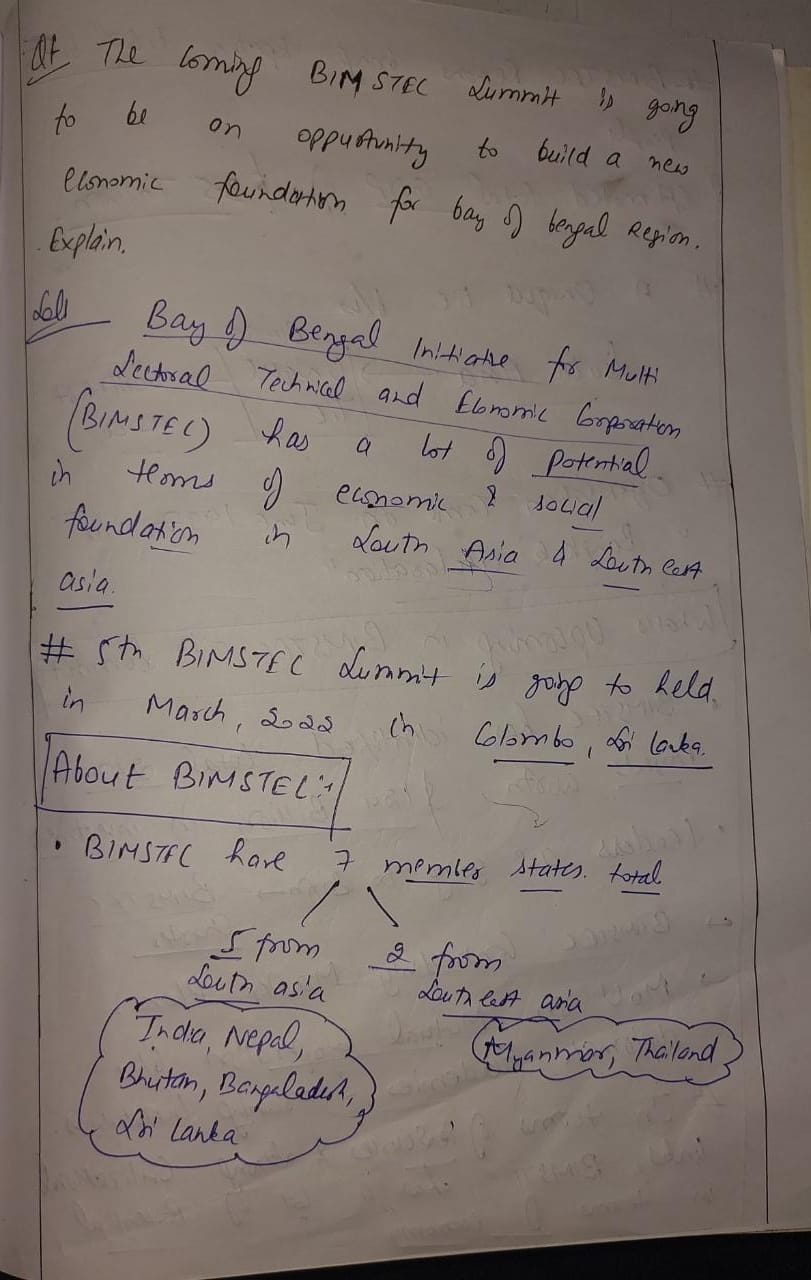 Q1 The Coming BIMSTEC Summit is going
to be an oppurtunity to build a new
economic foundation for bay of bengal Region.
Explain.
Sol:
Bay of Bengal Initiative for Multi
Sectoral Technical and Economic Corporation
(BIMSTEC) has a lot of potential
in terms of economic & social
foundation in South Asia & South East
asia.
# 5th BIMSTEC Summit is going to held
in March, 2022 in Colombo, Sri lanka.
About BIMSTEC :-
• BIMSTEC have 7 member states. total
5 from 2 from
South asia South east asia
India, Nepal,
Bhutan, Bangaladesh,
Sri Lanka
Myanmar, Thailand